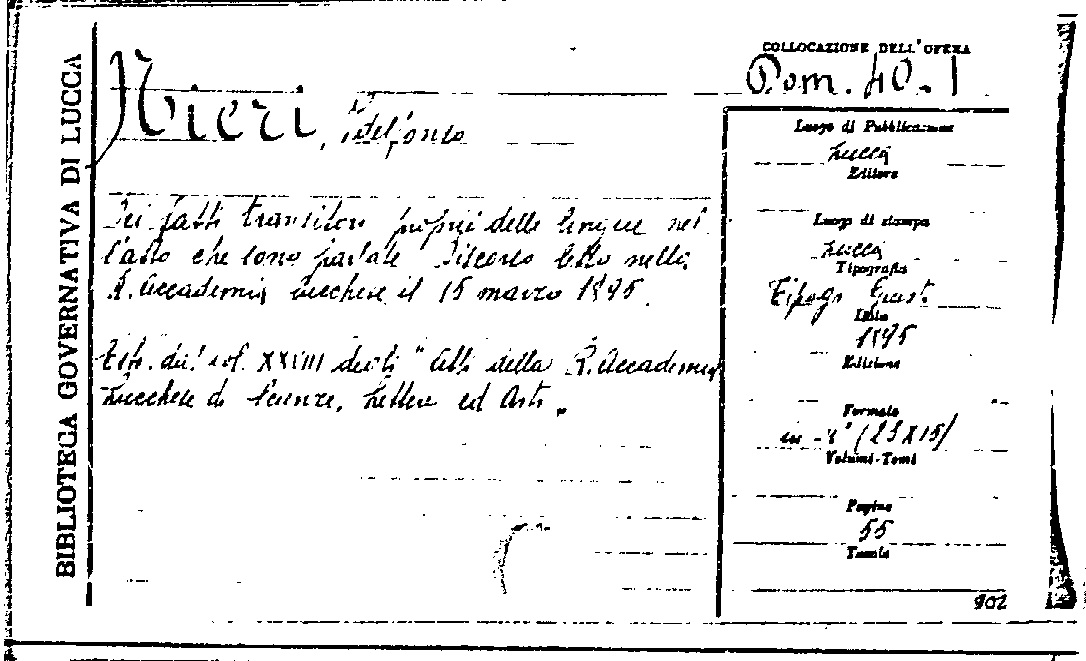 BIBLIOTECA GOVERNATIVA DI LUCCA
Nieri, Idelfonso
Dei fatti transitori propri delle lingue nel-
l'atto che sono parlate Discorso letto nella
R. Accademia Lucchese il 15 marzo 1895.
Estr. dal vol. XXVIII degli "Atti della R. Accademia
Lucchese di Scienze, Lettere ed Arti.
COLLOCAZIONE DELL'OPERA
Pom. 40.1
Luogo di Pubblicazione
Lucca
Editore
Luogo di stampa
Lucca
Tipografia
Tipogr Giusti
Data
1895
Edizione
Formato
in -8° (23X15)
Volumi-Tomi
Pagine
55
Tavole
902